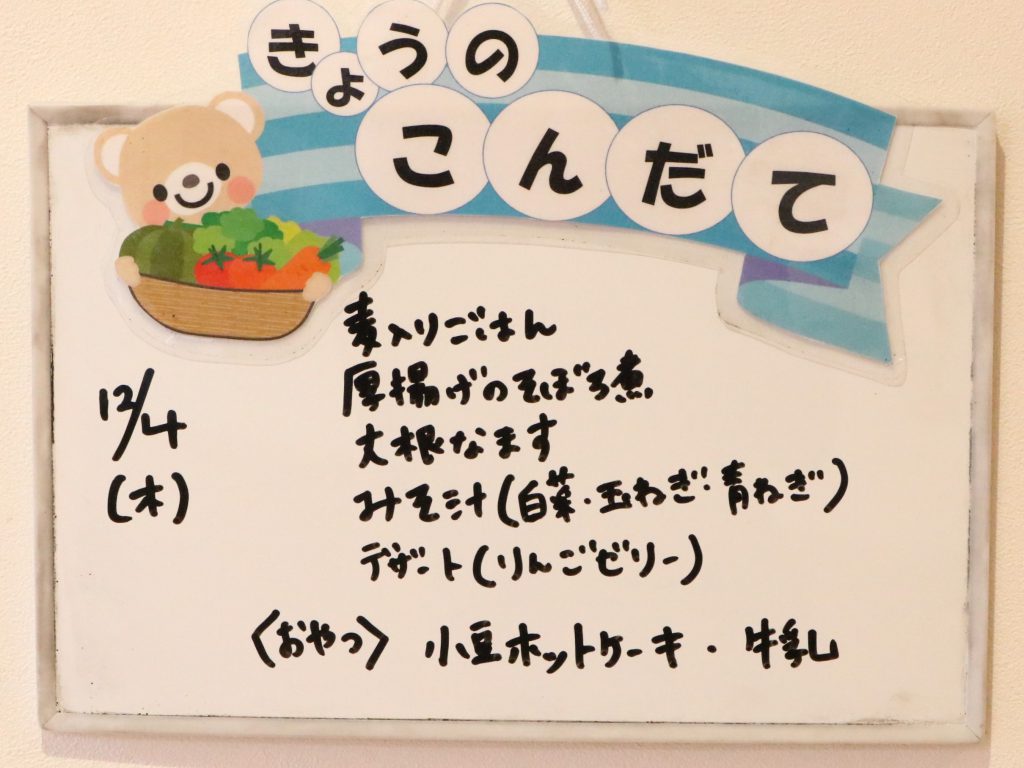 きょうの
こんだて
12/4
(木)
麦入りごはん
厚揚げのそぼろ煮
大根なます
みそ汁(白菜・玉ねぎ・青ねぎ)
デザート(りんごゼリー)
〈おやつ〉 小豆ホットケーキ・牛乳